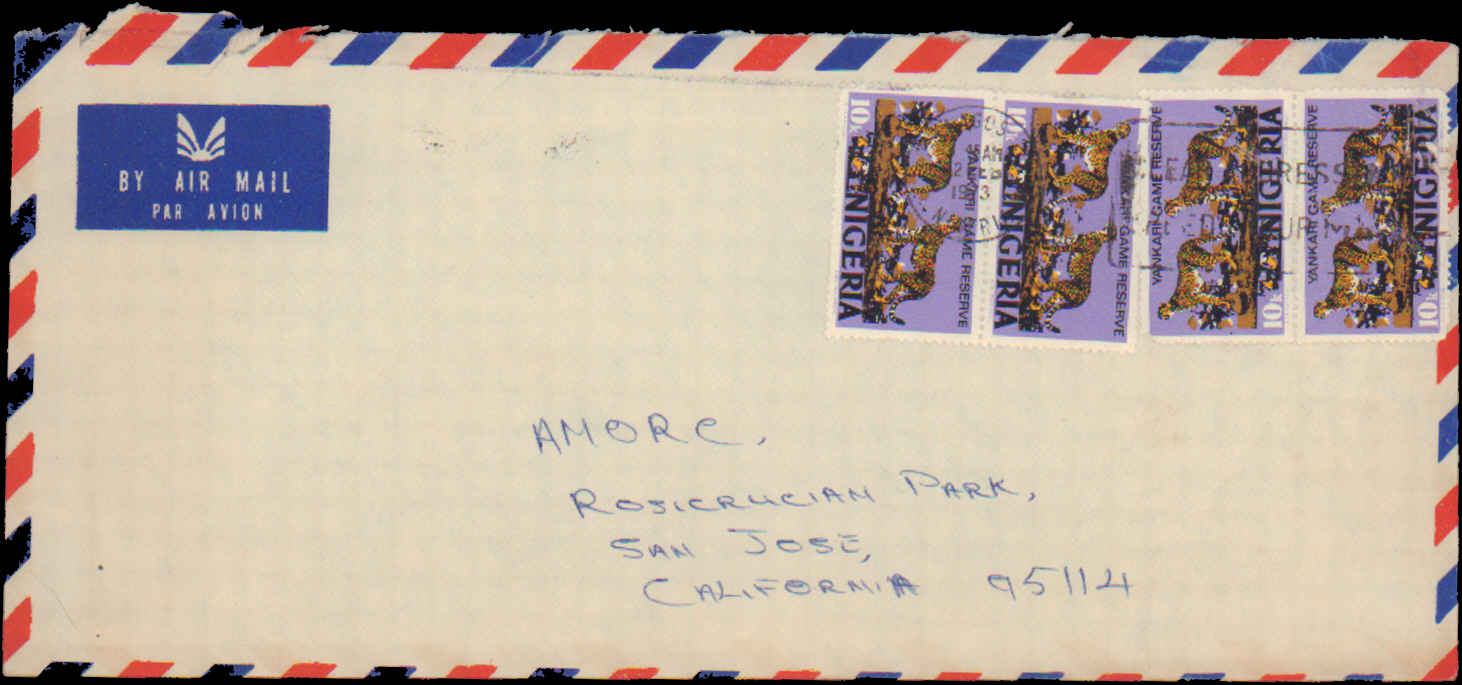 BY AIR MAIL
PAR AVION
10k NIGERIA
YANKARI GAME RESERVE
NIGERIA
YANKARI GAME RESERVE
YANKARI GAME RESERVE
10k NIGERIA
YANKARI GAME RESERVE
10k NIGERIA
AMORC,
ROSICRUCIAN PARK,
SAN JOSE,
CALIFORNIA 95114